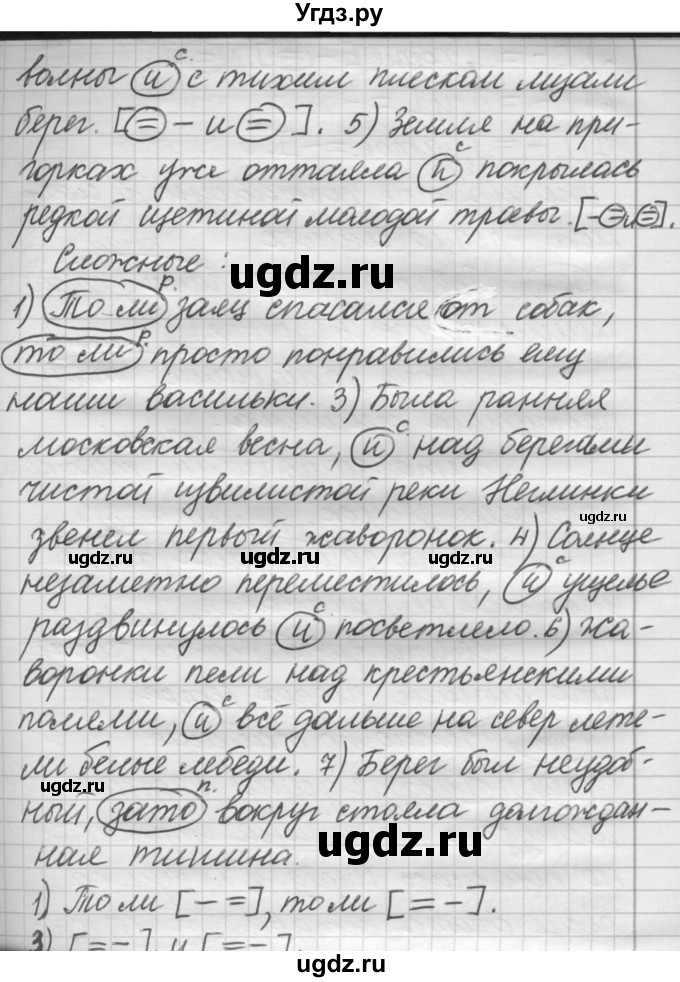 Угдз.ру
волны (и)с с тихим плеском лизали
берег. [= – и =]. 5) Земля на при-
горках уже оттаяла (и)с покрылась
редкой щетиной молодой травы. [– = и =].
Сложные :
ugdz.ru
1) То ли р. заяц спасался от собак,
то ли р. просто понравились ему
наши васильки. 3) Была ранняя
московская весна, (и)с над берегами
чистой извилистой реки Неглинки
ugdz.ru
звенел первый жаворонок. 4) Солнце
ugdz.ru ugdz.ru ugdz.ru
незаметно переместилось, (и)с ущелье
раздвинулось (и)с посветлело. 6) Жа-
воронки пели над крестьянскими
полями, (и)с всё дальше на север лете-
ли белые лебеди. 7) Берег был неудоб-
ный, зато п. вокруг стояла долгождан-
ugdz.ru ugdz.ru
ная тишина.
1) То ли [– =], то ли [= –].
3) [= –], и [= –].
ugdz.ru